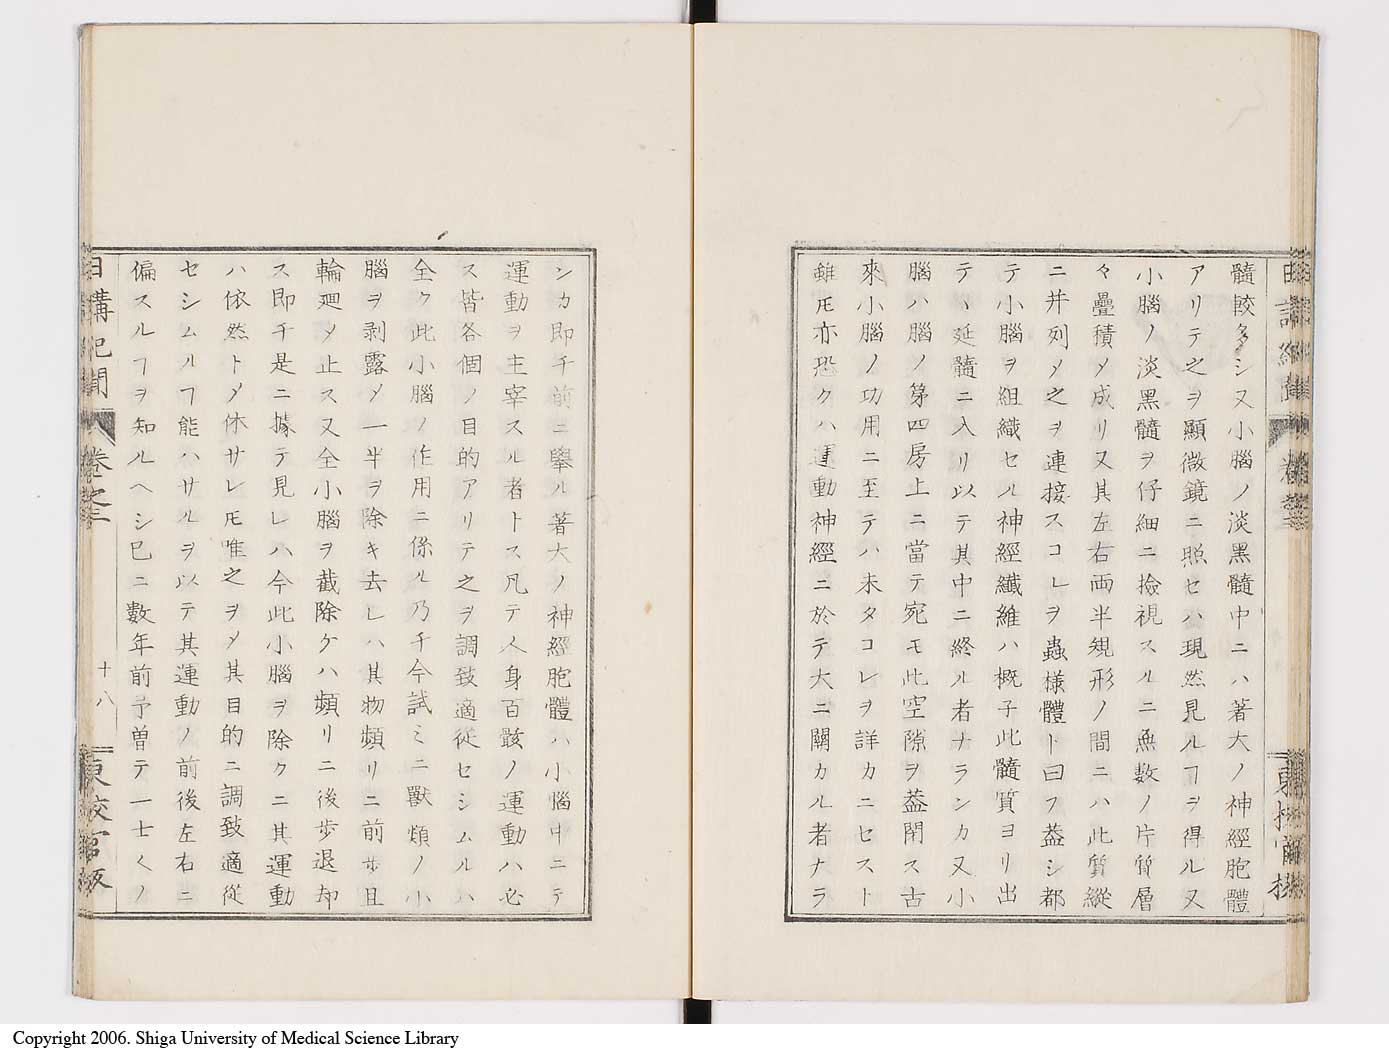 髓較多シ又小腦ノ淡黑髓中ニハ著大ノ神經胞體
アリテ之ヲ顯微鏡ニ照セハ現然見ルヿヲ得ル又
小腦ノ淡黑髓ヲ仔細ニ撿視スルニ無數ノ片質層
々疊積〆成リ又其左右両半規形ノ間ニハ此質縱
ニ并列〆之ヲ連接スコレヲ蟲樣體ト曰フ葢シ都
テ小腦ヲ組織セル神經纖維ハ概子此髓質ヨリ出
テヽ延髓ニ入リ以テ其中ニ終ル者ナランカ又小
腦ハ腦ノ第四房上ニ當テ宛モ此空隙ヲ葢閉ス古
來小腦ノ功用ニ至テハ未タコレヲ詳カニセスト
雖𪜈亦恐クハ運動神經ニ於テ大ニ關カル者ナラ
ンカ即チ前ニ擧ル著大ノ神經胞體ハ小腦中ニテ
運動ヲ主宰スル者トス凡テ人身百骸ノ運動ハ必
ス皆各個ノ目的アリテ之ヲ調致適從セシムルハ
全ク此小腦ノ作用ニ係ル乃チ今試ミニ獸類ノ小
腦ヲ剥露〆一半ヲ除キ去レハ其物頻リニ前歩且
輪廻〆止ス又全小腦ヲ截除ケハ頻リニ後歩退却
ス即チ是ニ據テ見レハ今此小腦ヲ除クニ其運動
ハ依然ト〆休サレ𪜈唯之ヲ〆其目的ニ調致適從
セシムルヿ能ハサルヲ以テ其運動ノ前後左右ニ
偏スルヿヲ知ルヘシ已ニ數年前予曽テ一士人ノ
日講記聞
卷之二
十八
東校官版